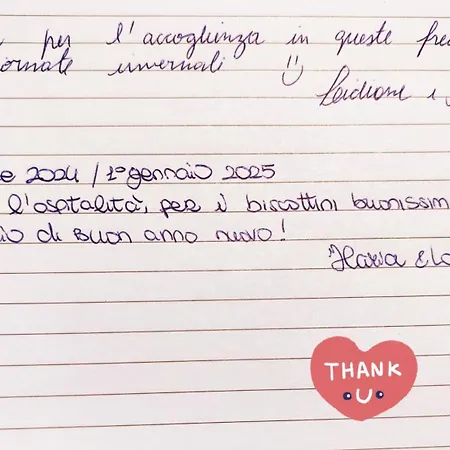 per l'accoglienza in queste fre
ornate invernali
e 2024 / 1° gennaio 2025
l'ospitalità, per i biscottini buonissim
io di buon anno nuovo!
Ilaria e Lo
THANK
U